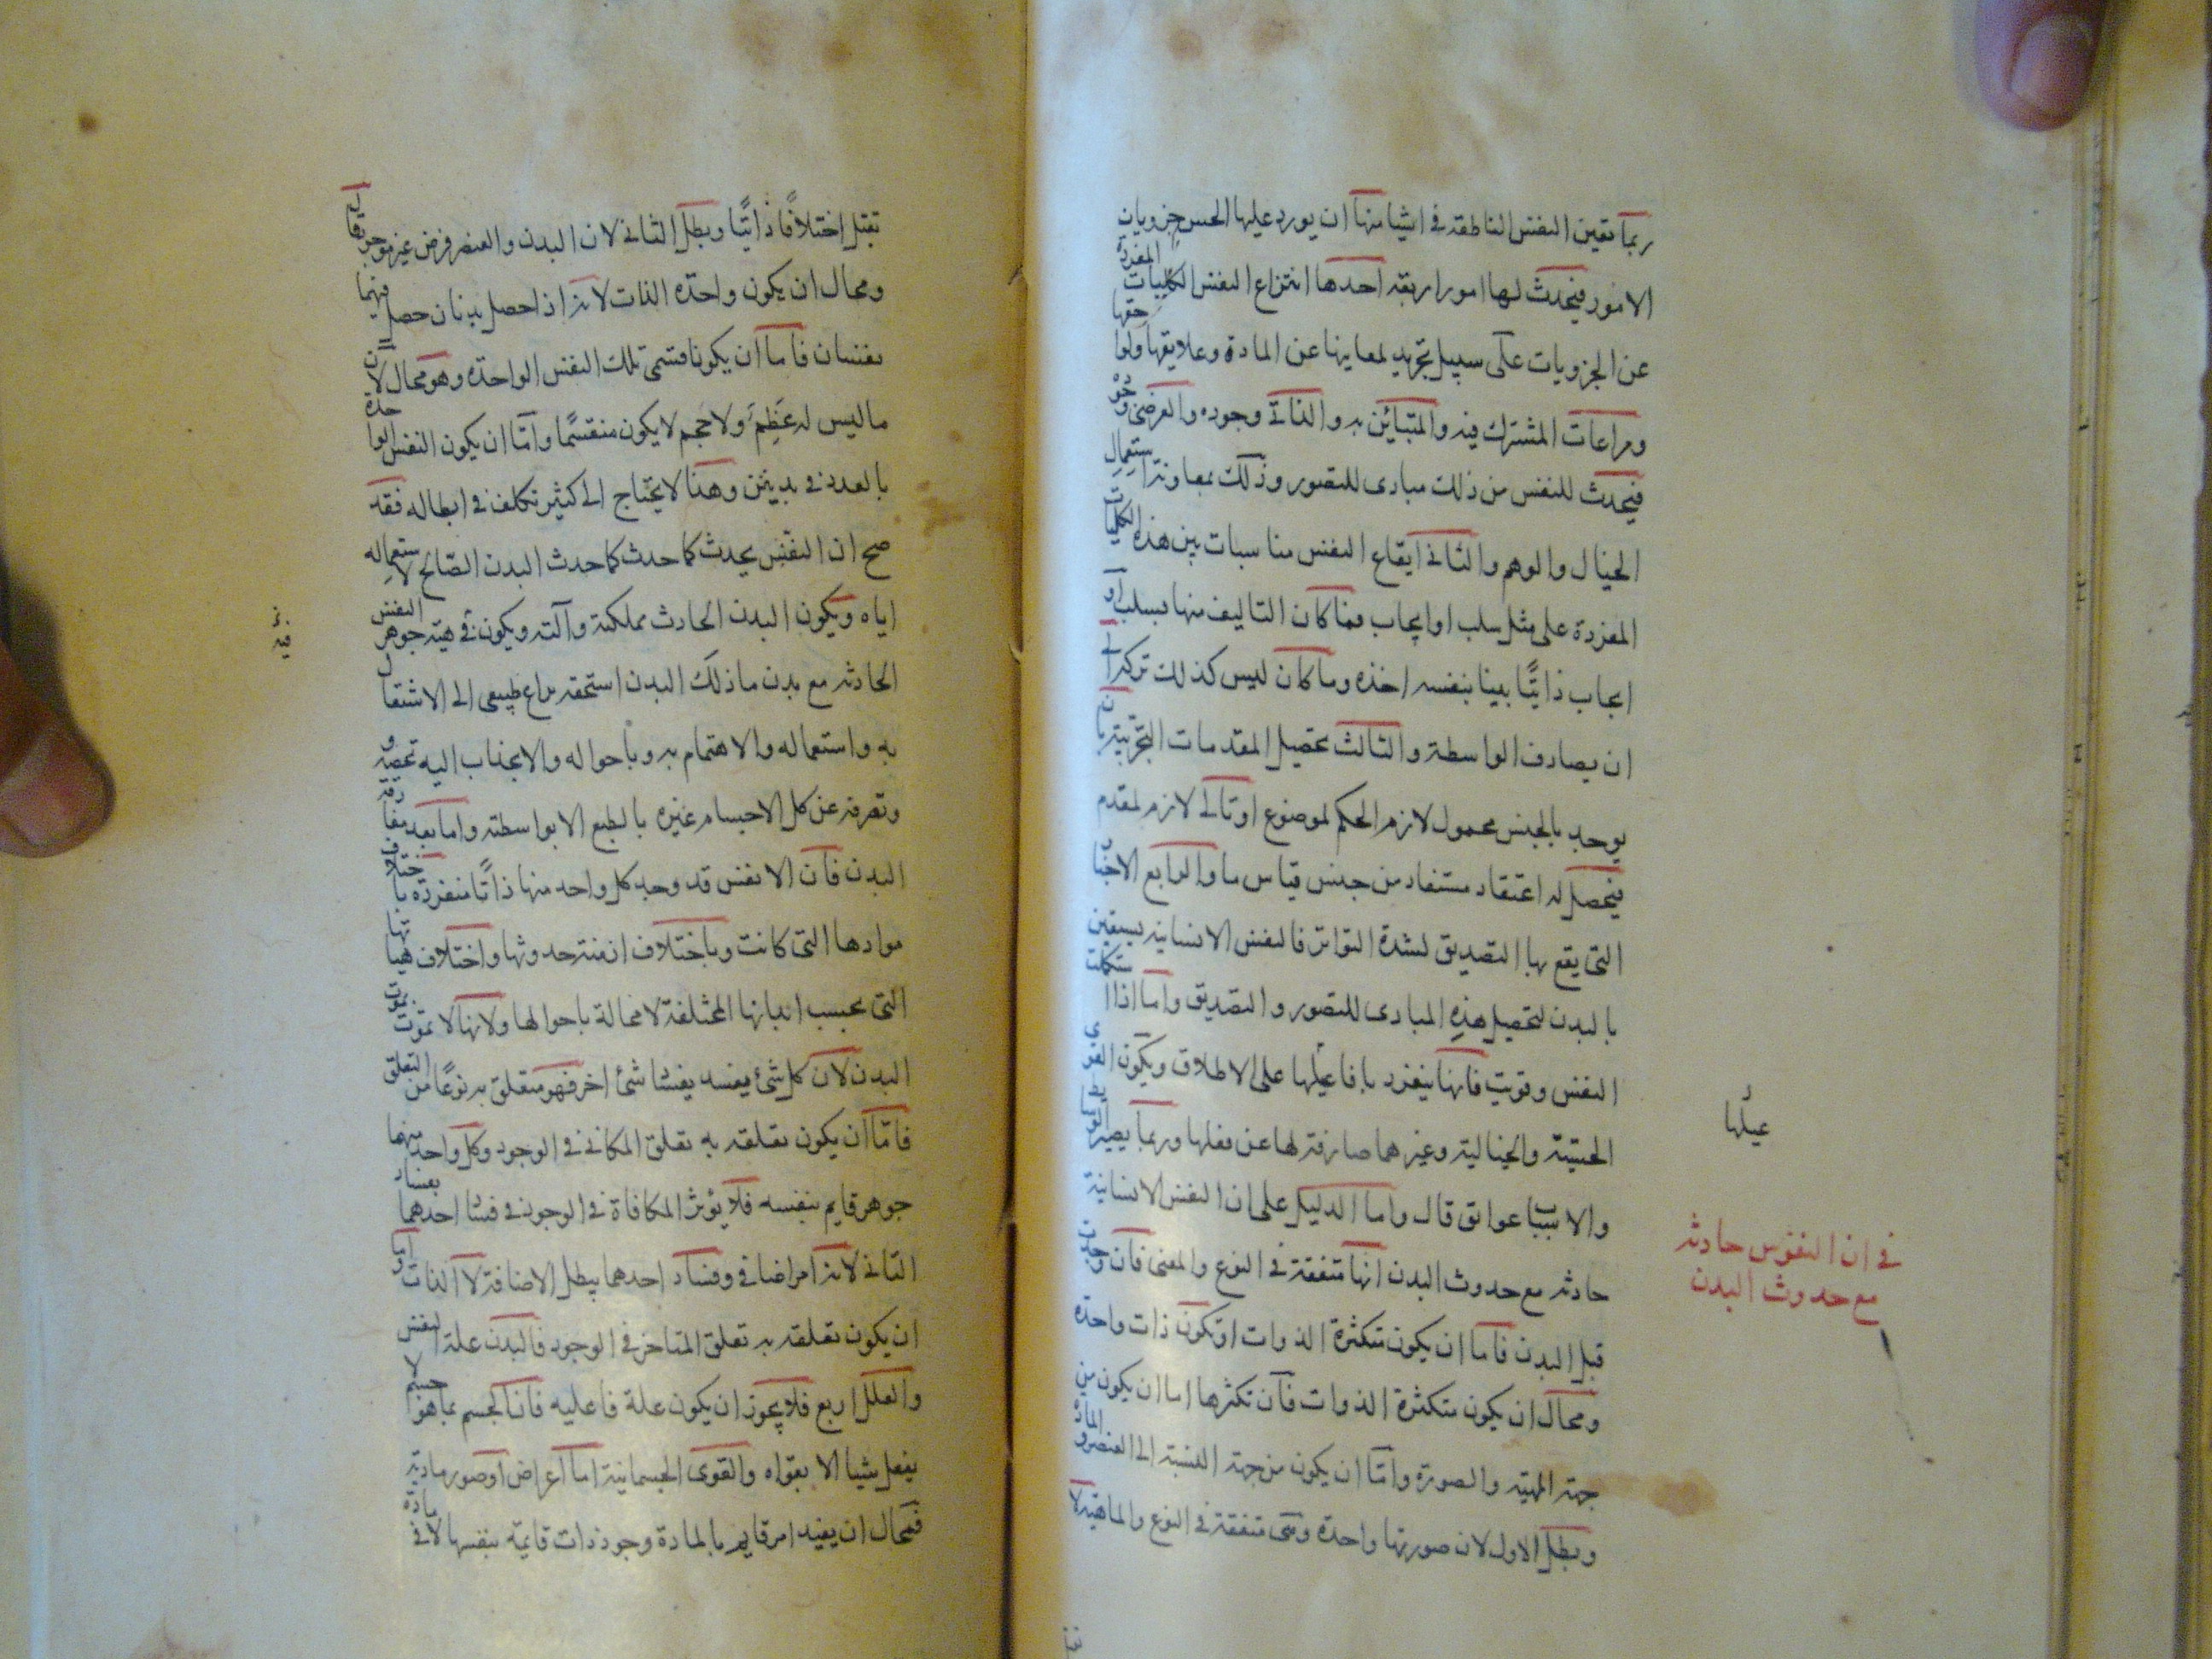 ربما تعين النفس الناطقه في اشيا منها ان يورد عليها الحس جزويات
الامور فيحدث لها امور اربعة احدها انتزاع النفس الكليات المفردة
عن الجزويات على سبيل تجريد لمعاينها عن المادة وعلايقها ولواحقها
ومراعات المشترك فيه والمتباين به والذاتي وجوده والعرضي وجوده
فيحدث للنفس من ذلك مبادى للتصور وذلك بمعاونة استعمال
الخيال والوهم والثاني ايقاع النفس مناسبات بين هذه الكليات
المفردة على مثل سلب او ايجاب فما كان التاليف منها بسلب او
ايجاب ذاتيًا بينا بنفسه اخذه وما كان ليس كذلك تركه الى
ان يصادف الواسطة والثالث تحصيل المقدمات التجربية بان
يوجد بالجنس محمول لازم الحكم لموضوع او تالى لازم لمقدم
فيحصل له اعتقاد مستفاد من جنس قياس ما والرابع الاخبار
التي يقع بها التصديق لشدة التواتر فالنفس الانسانية يستعين
بالبدن لتحصيل هذه المبادى للتصور والتصديق واما اذا استكملت
النفس وقويت فانها ينفرد بافاعيلها على الاطلاق ويكون القوى
عيلها
الحسية والخيالية وغيرهما صارفة لها عن فعلها وربما يصير الوسايط
والاسباب عوائق قال واما الدليل على ان النفس الانسانية
في ان النفوس حادثه
مع حدوث البدن
حادثه مع حدوث البدن انها متفقة في النوع والمعنى فان وجدت
قبل البدن فاما ان يكون متكثرة الذوات او تكون ذات واحدة
ومحال ان يكون متكثرة الذوات فان تكثرها اما ان يكون من
جهة المهية والصورة وامّا ان يكون من جهة النسبة الى العنصر والمادة
وبطل الاول لان صورتها واحدة وهى متفقة في النوع والماهية لا
تقبل اختلافًا ذاتيًا وبطل الثاني لان البدن والعنصر فرض غير موجود قال
ومحال ان يكون واحدة الذات لانه اذا حصل بدنان حصل فيهما
نفسان فاما ان يكونا قسمى تلك النفس الواحدة وهو محال لان
ما ليس له عِظَم ولا حجم لا يكون منقسمًا وامّا ان يكون النفس الواحدة
بالعدد في بدنين وهذا لا يحتاج الى كثير تكلف في ابطاله فقد
صح ان النفس يحدث كما حدث كما حدث البدن الصالح لاستعماله
اياه ويكون البدن الحادث مملكته وآلته ويكون في هيئة جوهر النفس
فيه
الحادثه مع بدن ما ذلك البدن استحقه نزاع طبيعى الى الاشتغال
به واستعماله والاهتمام به وباحواله والانجذاب اليه تخصه و
وتصرفه عن كل الاجسام غيره بالطبع الا بواسطته واما بعد مفارقة
البدن فان الانفس قد وجد كل واحد منها ذاتًا منفردة باختلاف
موادها التى كانت وباختلاف ازمنة حدوثها واختلاف هياتها
التى بحسب ابدانها المختلفة لا محالة باحوالها ولانها لا تموت بموت
البدن لان كل شئ يفسد بفساد شئ اخر فهو متعلق به نوعًا من التعلق
فامّا ان يكون تعلقه به تعلق المكافى في الوجود وكل واحد منهما
جوهر قايم بنفسه فلا يؤثر المكافاة في الوجود في فساد احدهما بفساد
الثانى لانه امر اضافى وفساد احدهما يبطل الاضافة لا الذات واما
ان يكون تعلقه به تعلق المتاخر في الوجود فالبدن علة النفس
والعلل اربع فلا يجوز ان يكون علة فاعليه فان الجسم بما هو جسم لا
يفعل شيئا الا بقواه والقوى الجسمانية اما اعراض او صور مادية
فمحال ان يفيد امر قايم بالمادة وجود ذات قايمة بنفسها لا في مادة